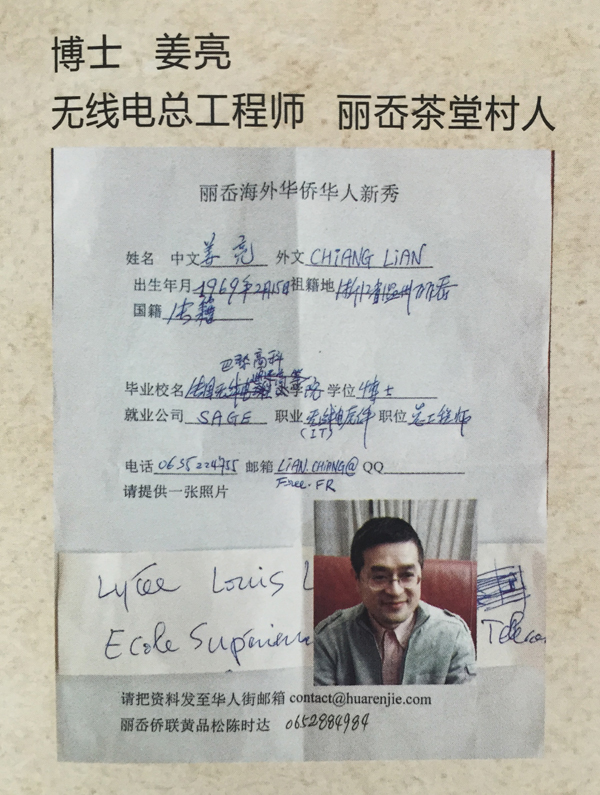 博士 姜亮
无线电总工程师 丽岙茶堂村人
丽岙海外华侨华人新秀
姓名 中文 姜亮 外文 CHiANG LiAN
出生年月 1969年2月15日 祖籍地 浙江省温州丽岙
国籍 法籍
巴黎高科
毕业校名 学院 学位 博士
就业公司 SAGE 职业 无线电软件 职位 总工程师
(IT)
电话 0635224755 邮箱 LiAN.CHiANG@ QQ
Free.FR
请提供一张照片
Lycee Louis L
Ecole Superieur Telecom
请把资料发至华人街邮箱 contact@huarenjie.com
丽岙侨联黄品松陈时达 0652884984